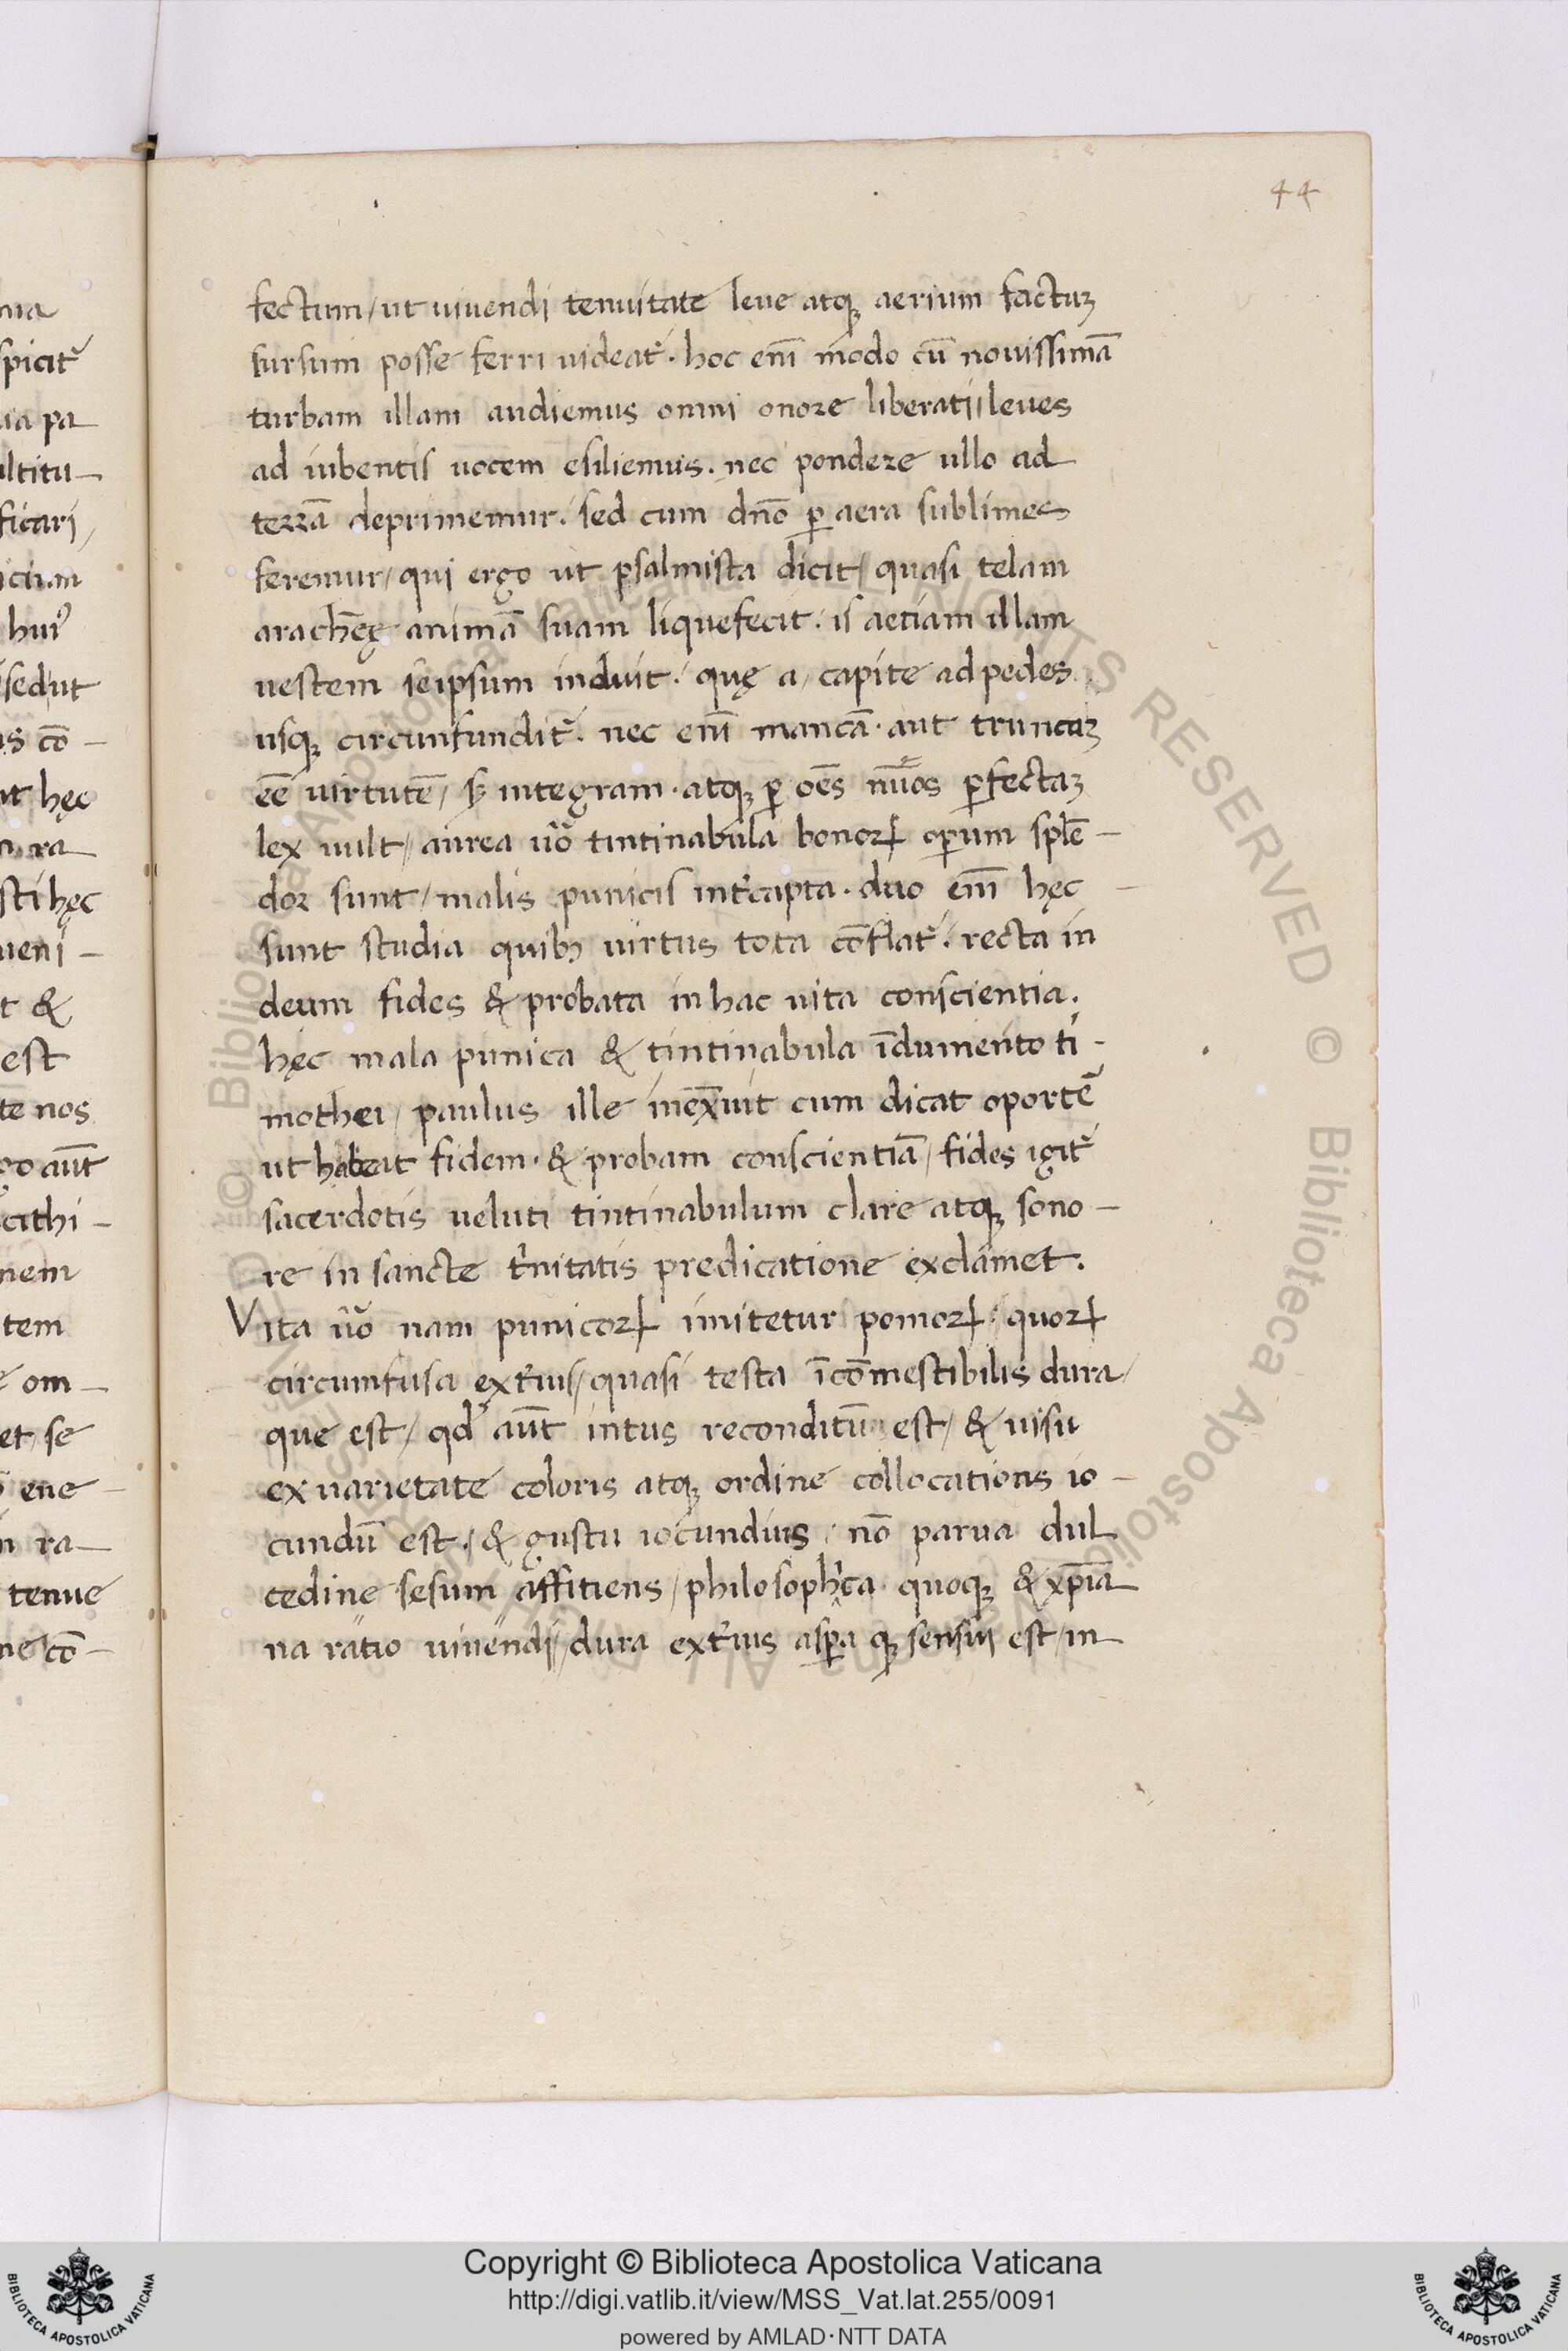 44
fectum / ut uiuendi tenuitate leue atqꝫ aerium factuꝫ
sursum posse ferri uideat᷑ . hoc enī modo cū nouissimā
turbam illam audiemus omni onore liberati / leues
ad iubentis uocem esiliemus . nec pondere ullo ad
terrā deprimemur . sed cum dnō ꝑ aera sublimes
feremur / qui ergo ut psalmista dicit / quasi telam
arachēę animā suam liquefecit . is aetiam illam
uestem seipsum induit . quę a / capite ad pedes
usqꝫ circunfundit᷑ . nec enī mancā . aut truncaꝫ
eē uirtutē / sꝫ integram . atqꝫ ꝑ oēs perfectaꝫ
lex uult / aurea uõ tintinabula bonoꝝ operum splē -
dor sunt / malis punicis intercapta . duo enī hęc -
sunt studia quibꝫ uirtus tota cōflat᷑ . recta in
deum fides & probata in hac uita conscientia .
hęc mala punica & tintinabula īdumento ti -
mothei / paulus ille cum dicat oportē
ut habeat fidem . & probam conscientiā / fides igit᷑
sacerdotis ueluti tintinabulum clare atqꝫ sono -
re in sancte t'nitatis predicatione exclamet .
Vita uõ nam punicoꝝ imitetur pomoꝝ / quoꝝ
circumfusa ext'ius / quasi testa īcōmestibilis dura /
que est / qd' aūt intus reconditū est / & uisu
ex uarietate coloris atqꝫ ordine collocations io -
cundū est . / & gustu iocundius . nō parua dul
cedine sesum affitiens / philosoph'ca quoqꝫ & xp̄ia
na ratio uiuendi / dura ext'ius aspera qꝫ sensui est / in
Copyright © Biblioteca Apostolica Vaticana
http://digi.vatlib.it/view/MSS_Vat.lat.255/0091
powered by AMLAD·NTT DATA